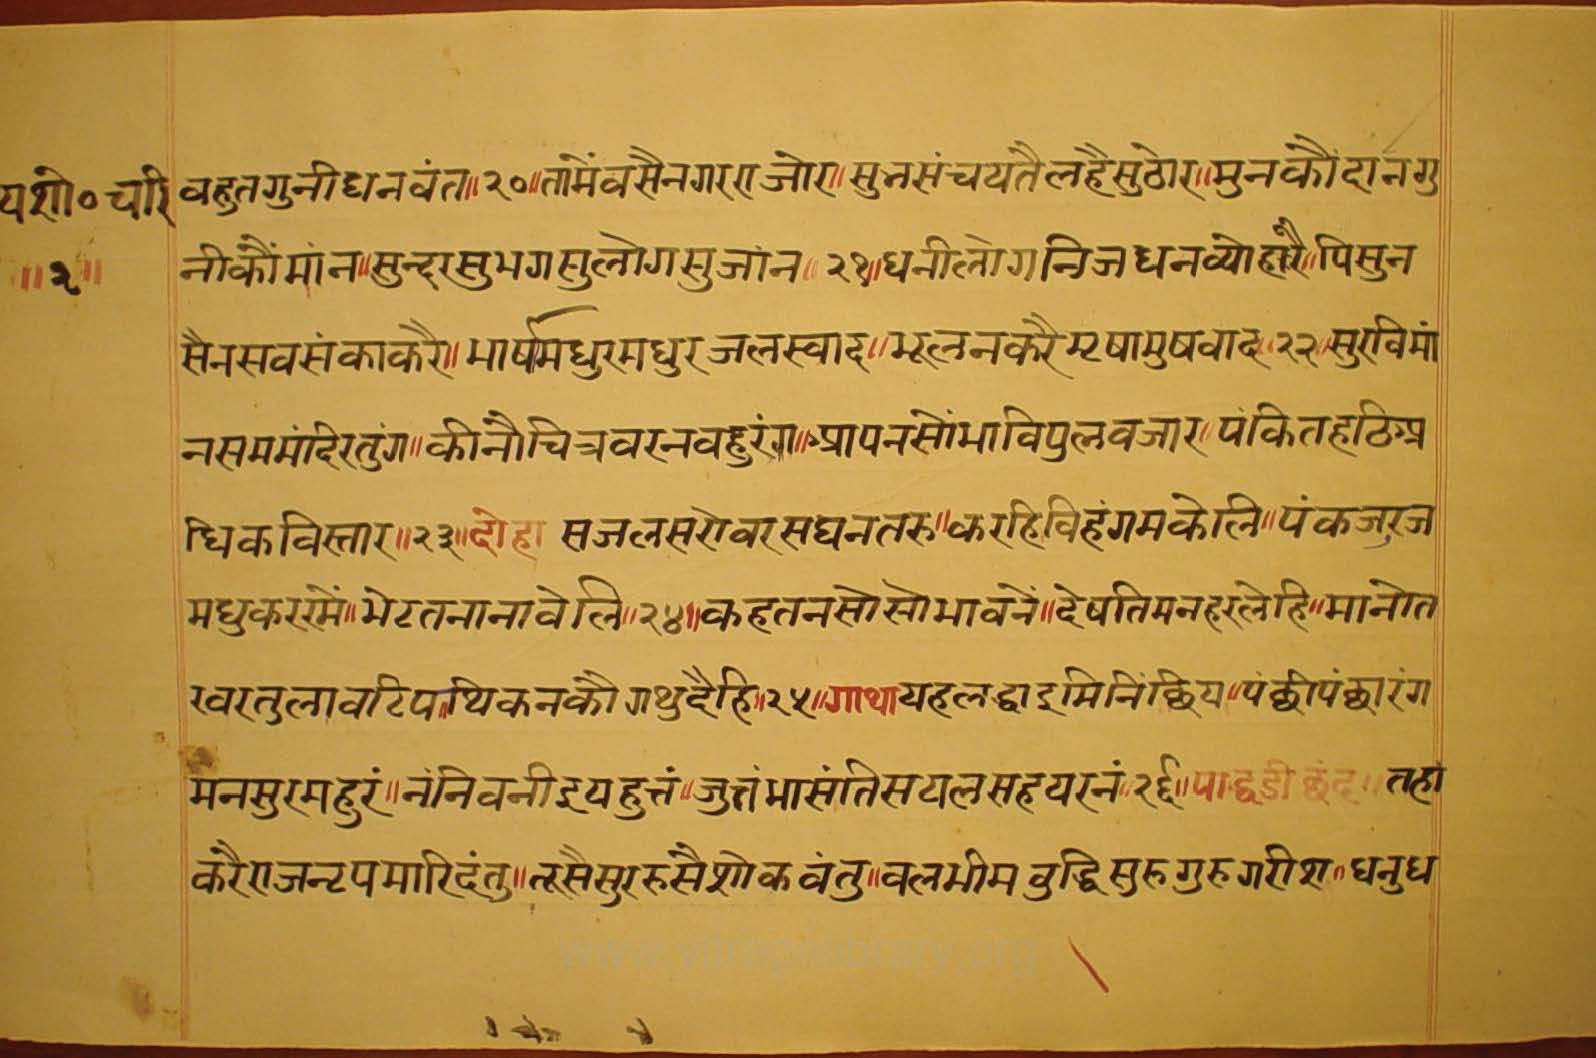 यशो० चरि
॥२॥
वहुतगुनीधनवंत॥२०॥तामैंवसैनगरराजोरा॥सुनसंचयतैलहैसुठोर॥मुनकौंदांनगु
नीकौंमांन॥सुन्दरसुभगसुलोगसुजांन॥२१॥धनीलोगनिजधनव्योहारै॥पिसुन
सैनसवसंकाकरै॥मार्षमधुरमधुरजलस्वाद॥भूलनकरैमृषामुषवाद॥२२॥सुरविमां
नसममंदिरतुंग॥कीनौचित्रवरनवहुरंग॥प्रापनसोंभाविपुलवजार॥पंकितहठिअ
धिकविस्तार॥२३॥दोहा सजलसरोवरसघनतरु॥करहिविहंगमकेलि॥पंकजरज
मधुकररमें॥भेटतनानावेलि॥२४॥कहतनसोसोभावनें॥देषतिमनहरलेहि॥मानोत
रवरतुलावटि॥पथिकनकौगथुदैहि॥२५॥गाथायहलद्धाइमिनिंछिय॥पंछीपंछारंग
मनसुरमहुरं॥नंनिवनीइयहुत्तं॥जुत्तंभासंतिसयलसहयरनं॥२६॥पाद्धडीछंद॥तहां
करैराजनृपमारिदंतु॥त्रूसैसुररुसैशोकवंतु॥वलभीमवुद्धिसुरुगुरुगरीश॥धनुध
www.vitragelibrary.org